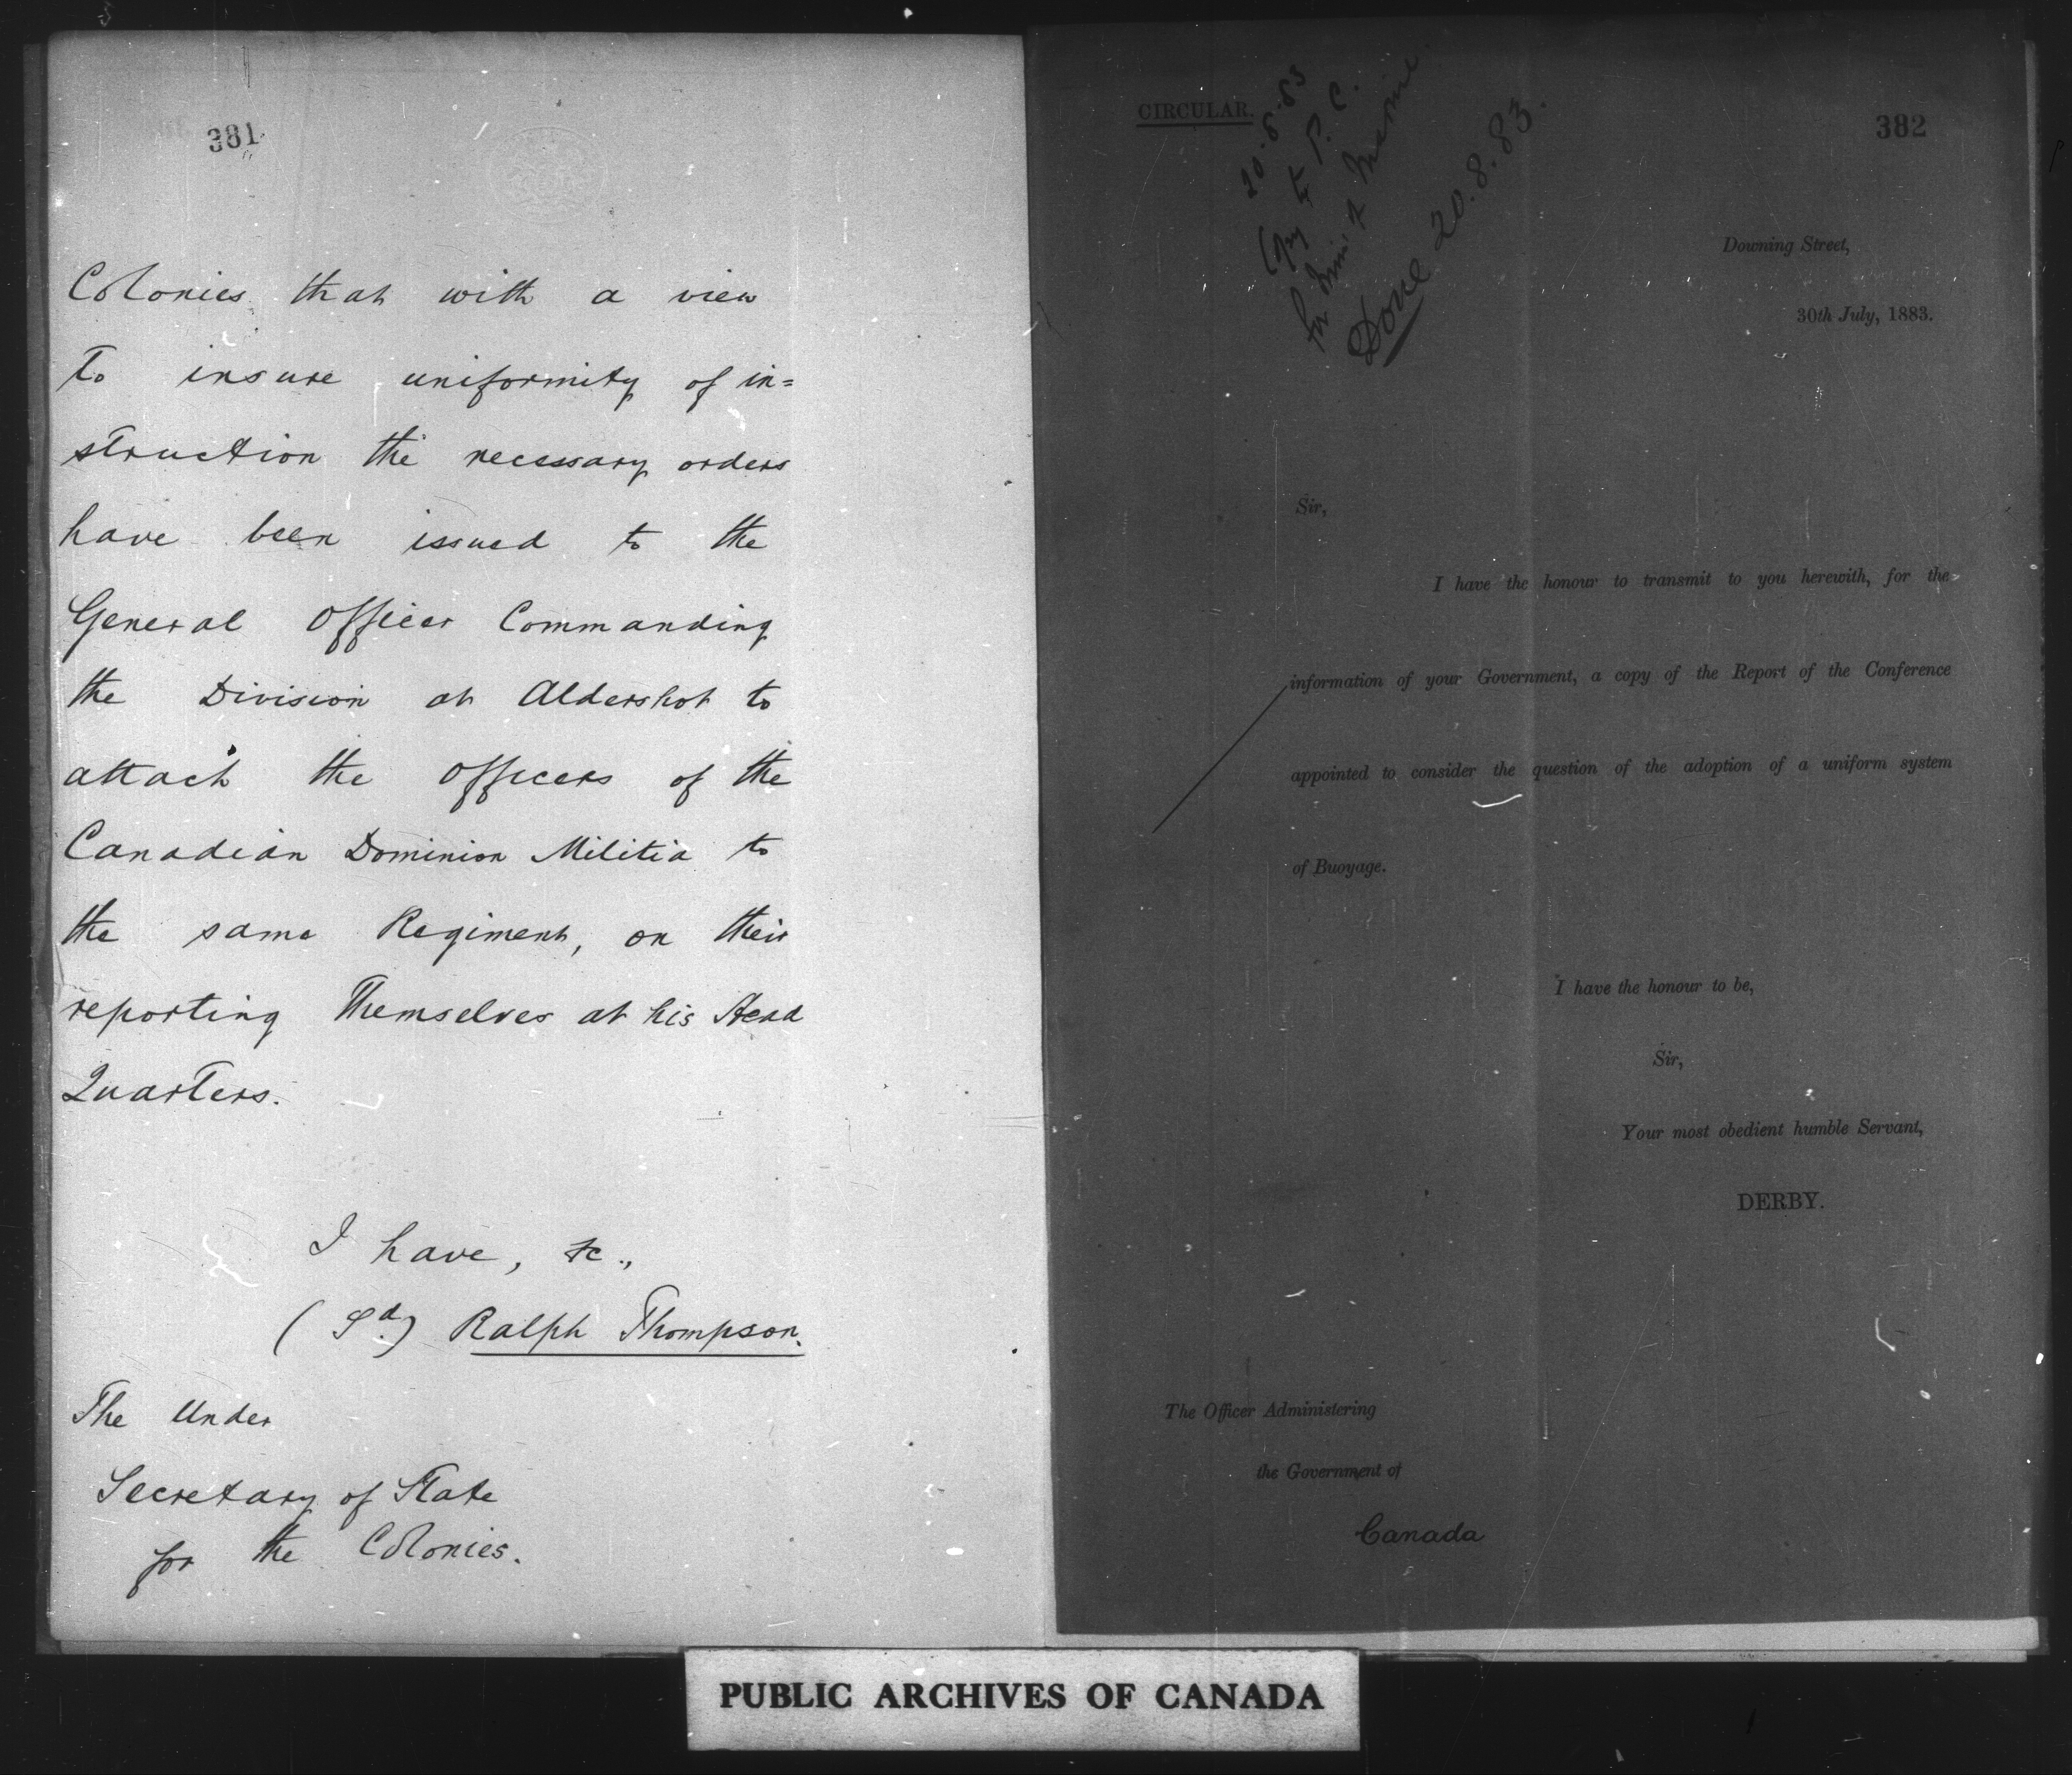 381
Colonies that with a view
To insure uniformity of in=
struction the necessary orders
have been issued to the
General Officer Commanding
the Division at Aldershot to
attach the Officers of the
Canadian Dominion Militia to
the same Regiment, on their
reporting Themselves at his Head
Quarters.
I have, &c.,
(Sd.) Ralph Thompson.
The Under
Secretary of State
for the Colonies.
CIRCULAR.
20.8.83
Copy to P.C.
for Min of Marine
Done 20.8.83.
382
Downing Street,
30th July, 1883.
Sir,
I have the honour to transmit to you herewith, for the
information of your Government, a copy of the Report of the Conference
appointed to consider the question of the adoption of a uniform system
of Buoyage.
I have the honour to be,
Sir,
Your most obedient humble Servant,
DERBY.
The Officer Administering
the Government of
Canada
PUBLIC ARCHIVES OF CANADA